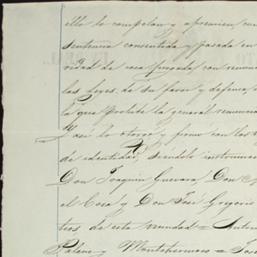 ello lo compelan y apremien com
sentencia consentida y pasada en
ridad de cosa juzgada con renun
las leyes de su favor y defensa
la que prohibe la general renuncia
Y así lo otorgó y firmó con los
de identidad, siendolo instrumen
Don Joaquin Guevara, Don
el Cosó y Don José Gregorio
tros de esta vecindad = Anton
y Montehermoso = José